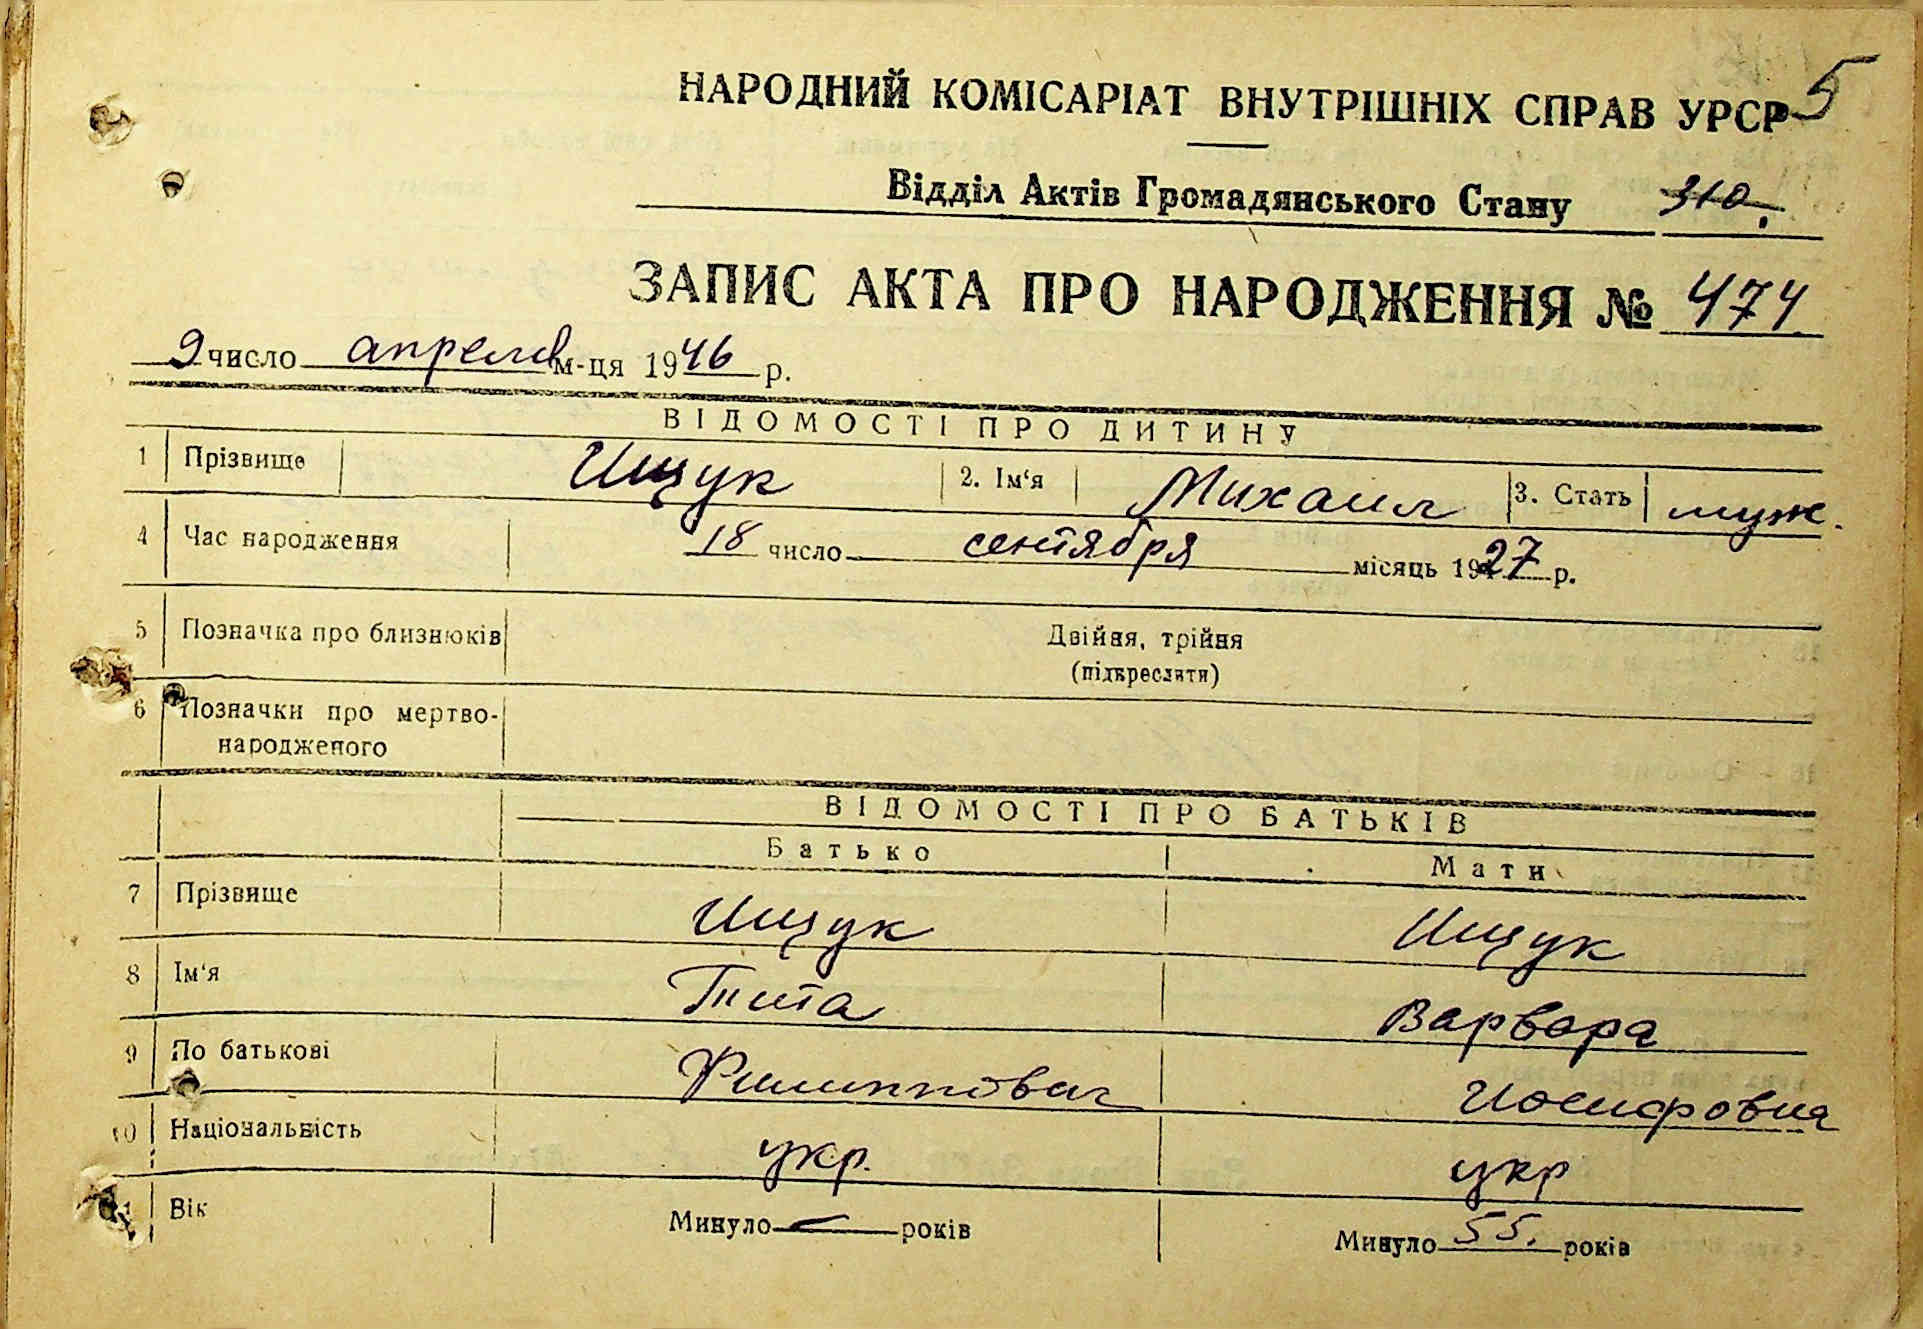 5
НАРОДНИЙ КОМІСАРІАТ ВНУТРІШНІХ СПРАВ УРСР
Відділ Актів Громадянського Стану 310.
ЗАПИС АКТА ПРО НАРОДЖЕННЯ № 474
9 число апреля м-ця 1946 р.
ВІДОМОСТІ ПРО ДИТИНУ
1 Прізвище Ищук 2. Ім‘я Михаил 3. Стать муж.
4 Час народження 18 число сентября місяць 1927 р.
5 Позначка про близнюків Двійня, трійня
(підкреслити)
6 Позначки про мертво-
народженого
ВІДОМОСТІ ПРО БАТЬКІВ
Батько Мати
7 Прізвище Ищук Ищук
8 Ім‘я Тита Варвара
9 По батькові Филиппович Иосифовна
10 Національність укр. укр
11 Вік Минуло — років Минуло 55. років